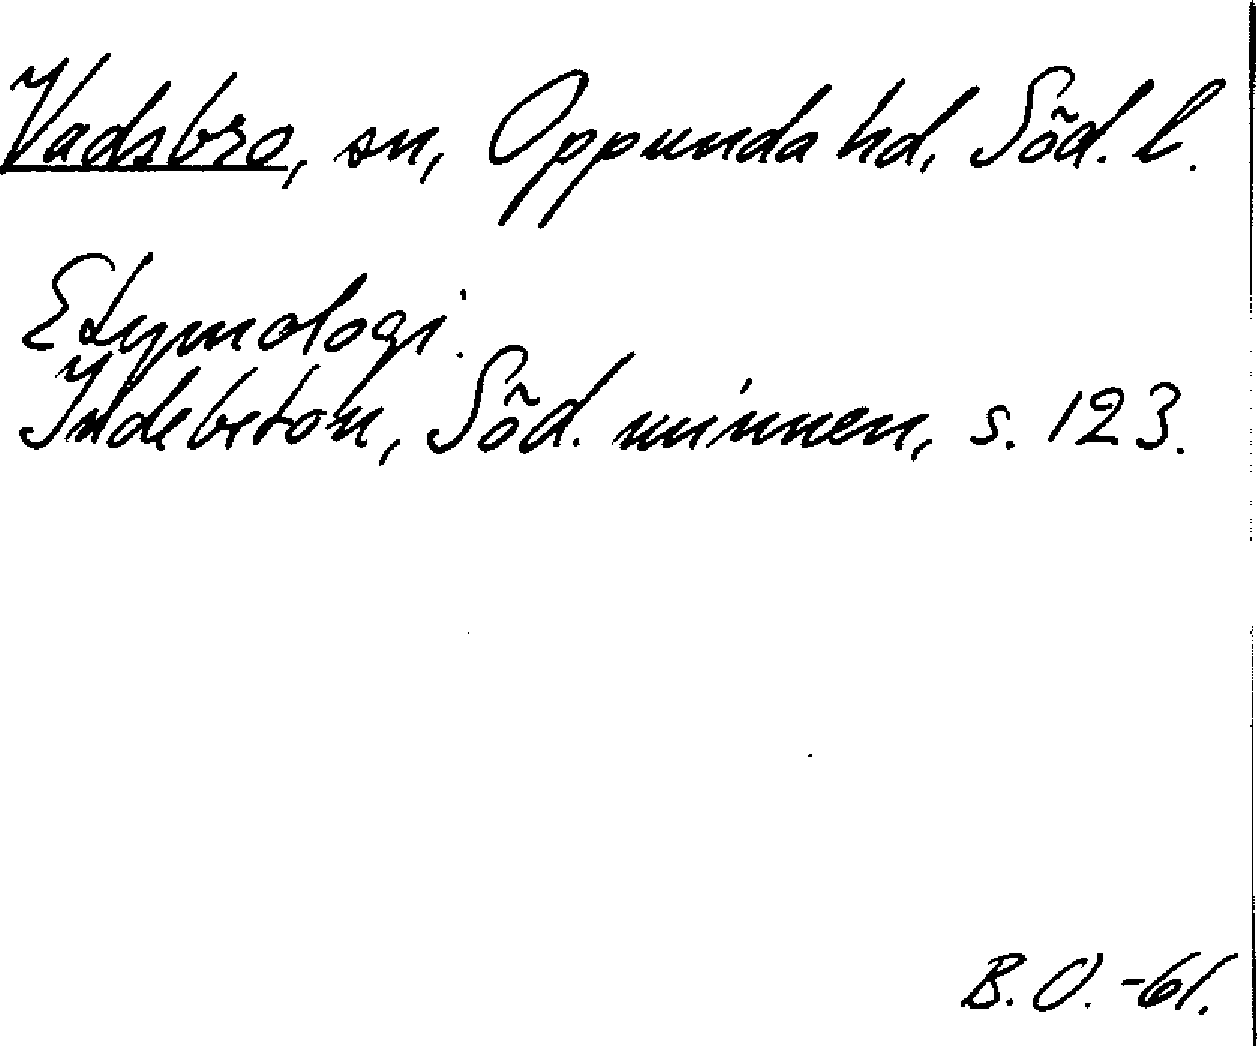 Vadsbro, sn, Oppunda hd, Söd. l.
Etymologi.
Indebetou, Söd. minnen, s. 123.
B. O. -61.